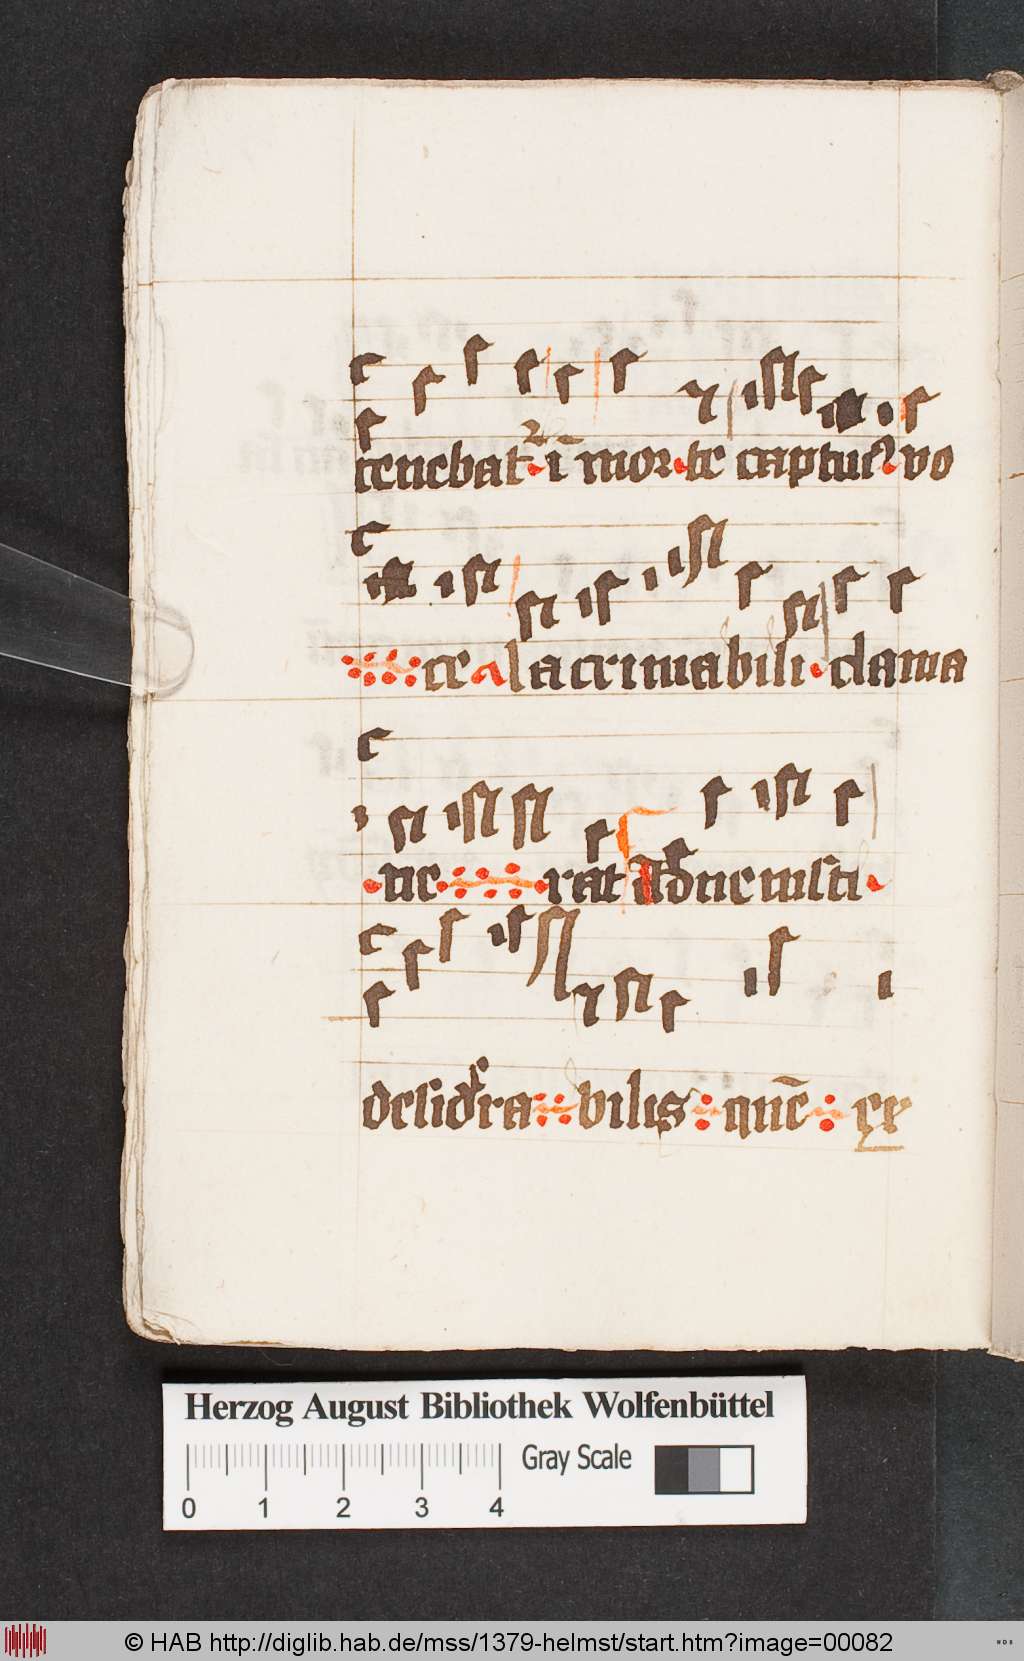 tenebat᷑ · ī mor · te captuꝰ · vo
ce a lacrimabili · clama
· ue · rat Adueniſti ·
deſidera bilis : quē : ex
Herzog August Bibliothek Wolfenbüttel
0 1 2 3 4 Gray Scale
© HAB http://diglib.hab.de/mss/1379-helmst/start.htm?image=00082